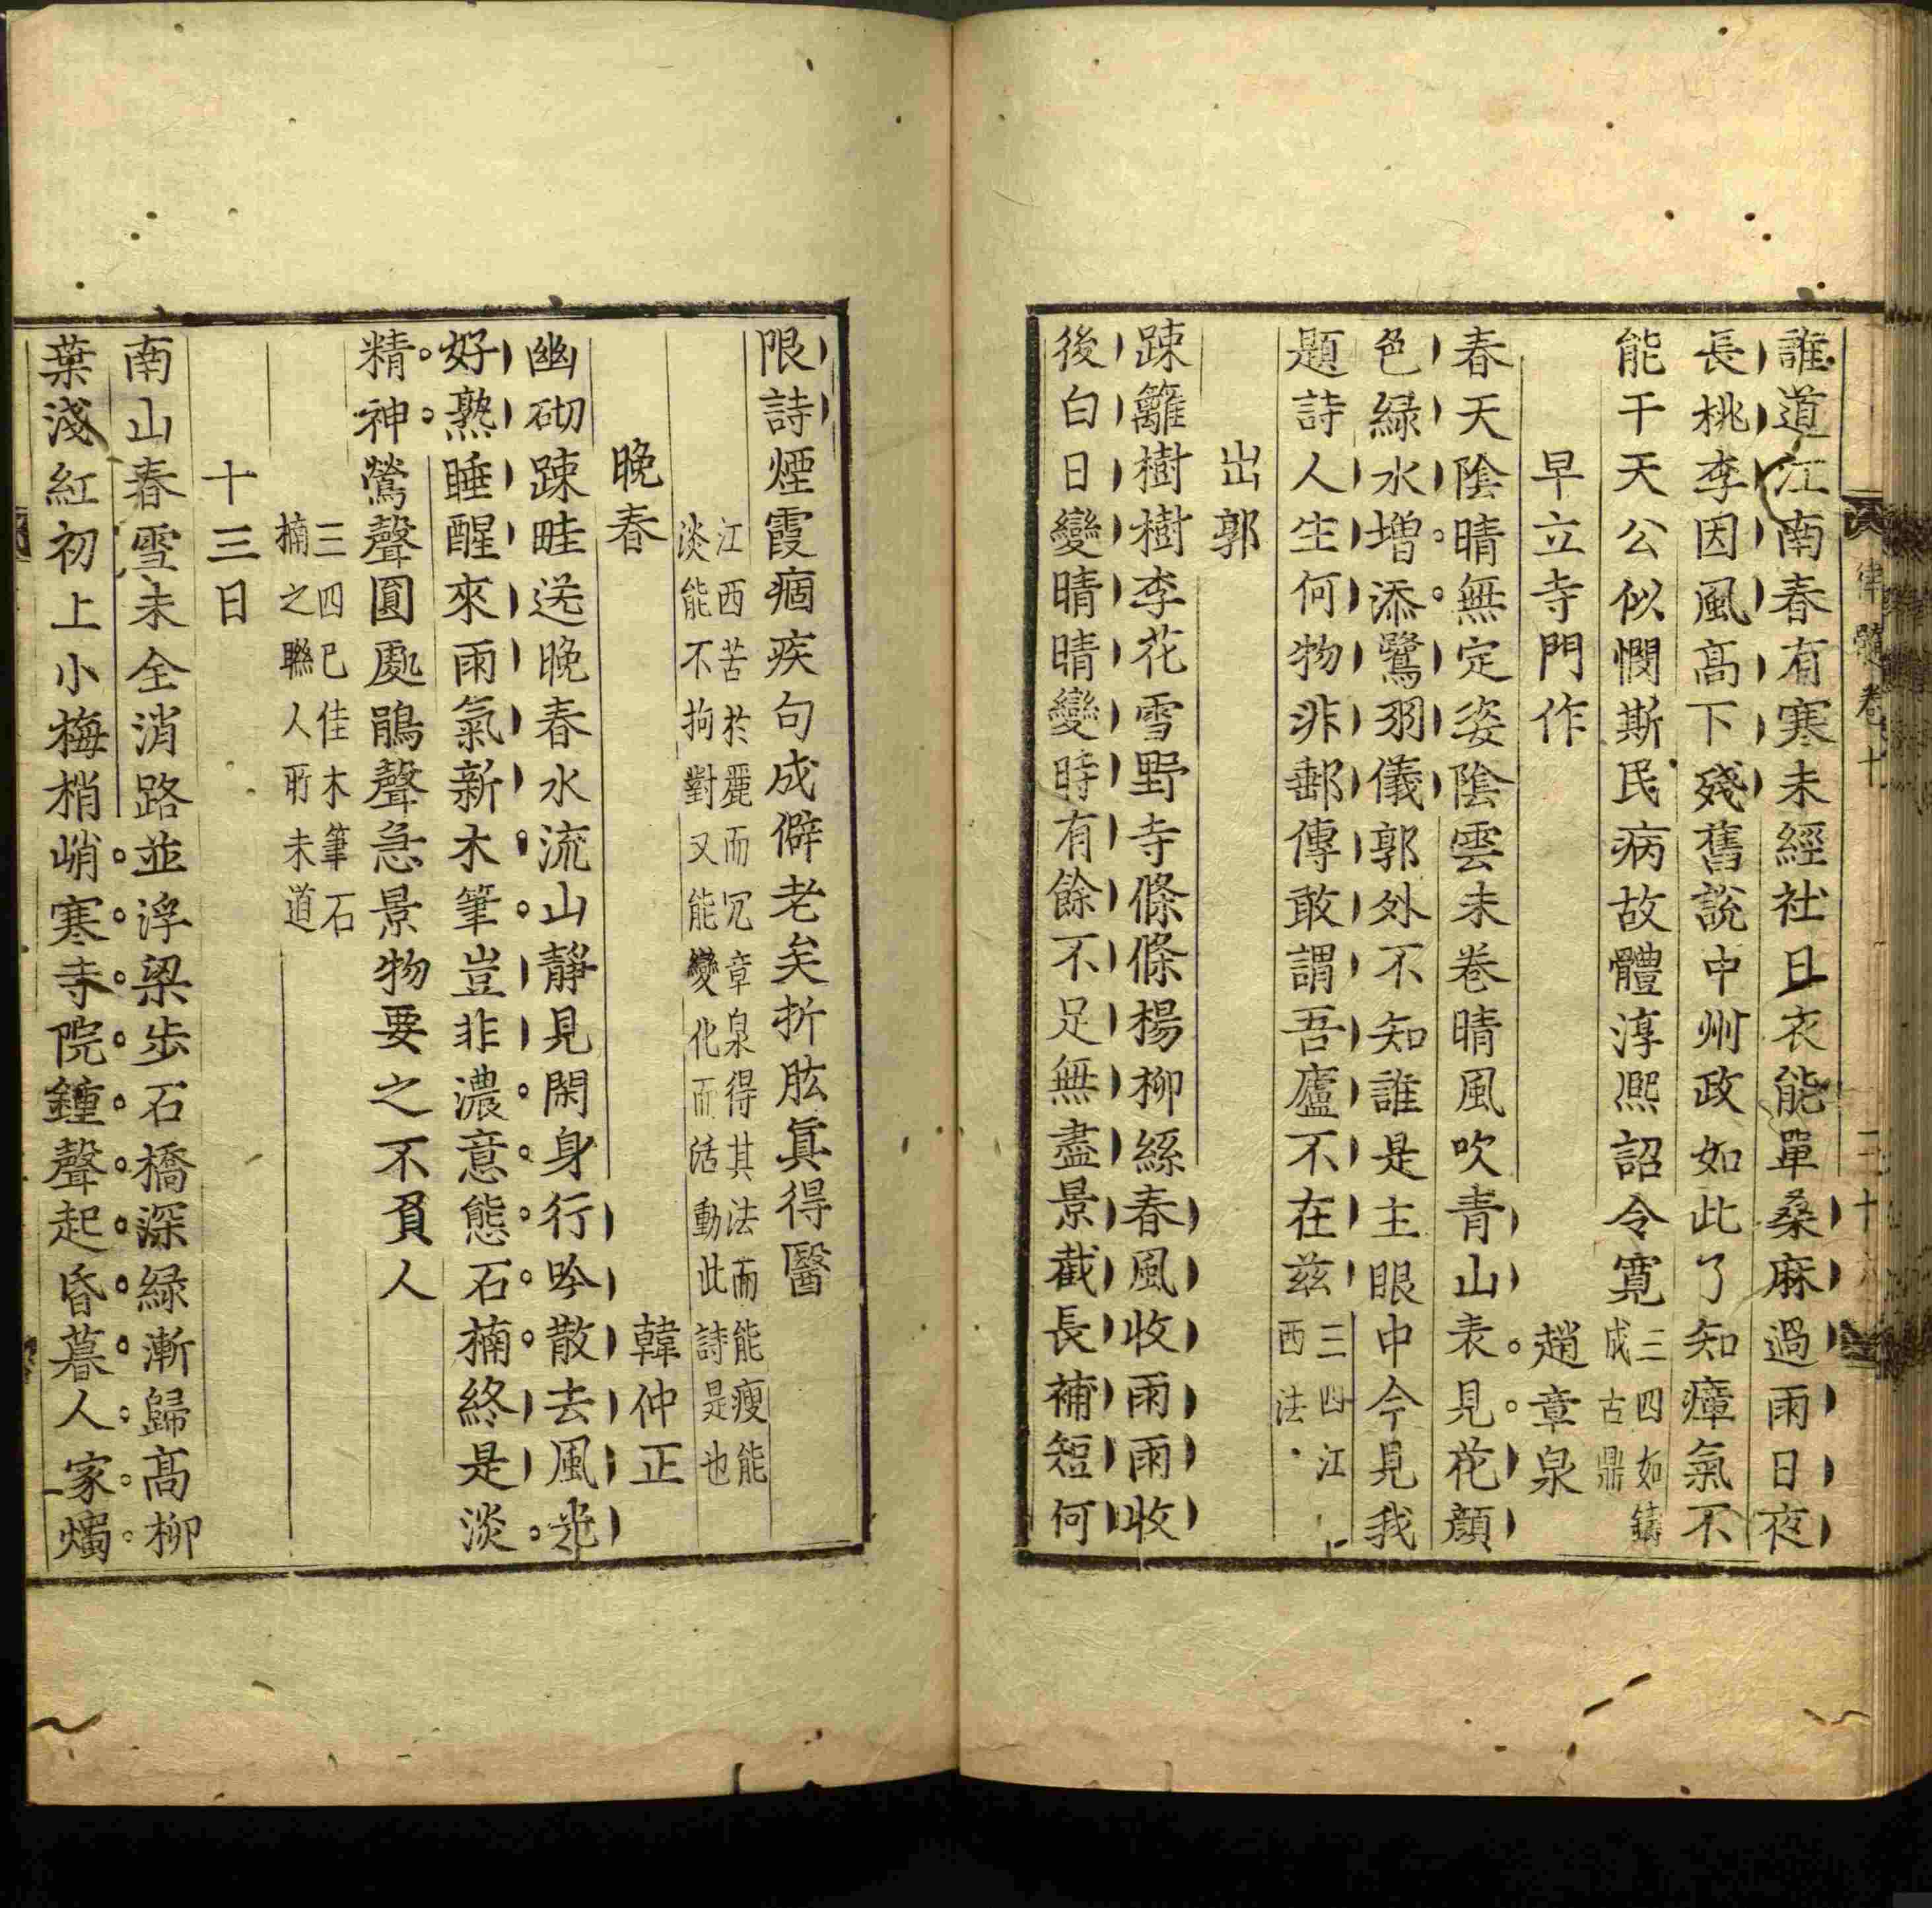 律髓卷十
誰道江南春有寒未經社日衣能單桑麻過雨日夜
長桃李因風髙下殘舊說中州政如此了知瘴氣不
能干天公似憫斯民病故體淳熈詔令寛三四如鑄
成古鼎
早立寺門作 趙章泉
春天陰晴無定姿陰雲未巻晴風吹青山表見花顔
色緑水增添鷺羽儀郭外不知誰是主眼中今見我
題詩人生何物非郵傳敢謂吾廬不在兹三四江
西法
出郭
踈籬樹樹李花雪野寺條條楊柳絲春風收雨雨收
後白日變晴晴變時有餘不足無盡景截長補短何
限詩煙霞痼疾句成僻老矣折肱眞得醫
江西苦於麗而冗章泉得其法而能瘦能
淡能不拘對又能變化而活動此詩是也
晚春 韓仲正
幽砌踈畦送晚春水流山靜見閑身行吟散去風光
好熟睡醒來雨氣新木筆豈非濃意態石楠終是淡
精神鶯聲圓處鵑聲急景物要之不負人
三四已佳木筆石
楠之聮人所未道
十三日
南山春雪未全消路並浮梁步石橋深緑漸歸髙柳
葉淺紅初上小梅梢峭寒寺院鍾聲起昏暮人家燭